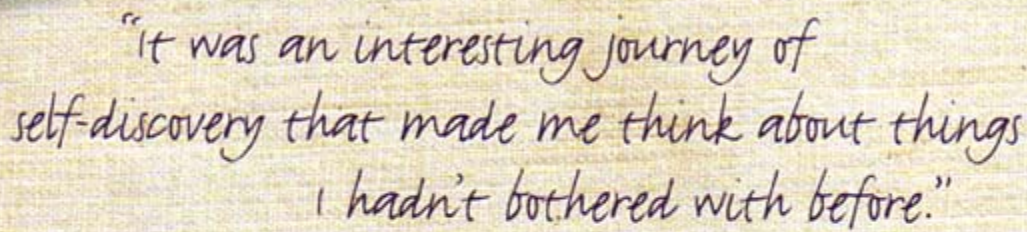 “it was an interesting journey of
self-discovery that made me think about things
I hadn’t bothered with before.”